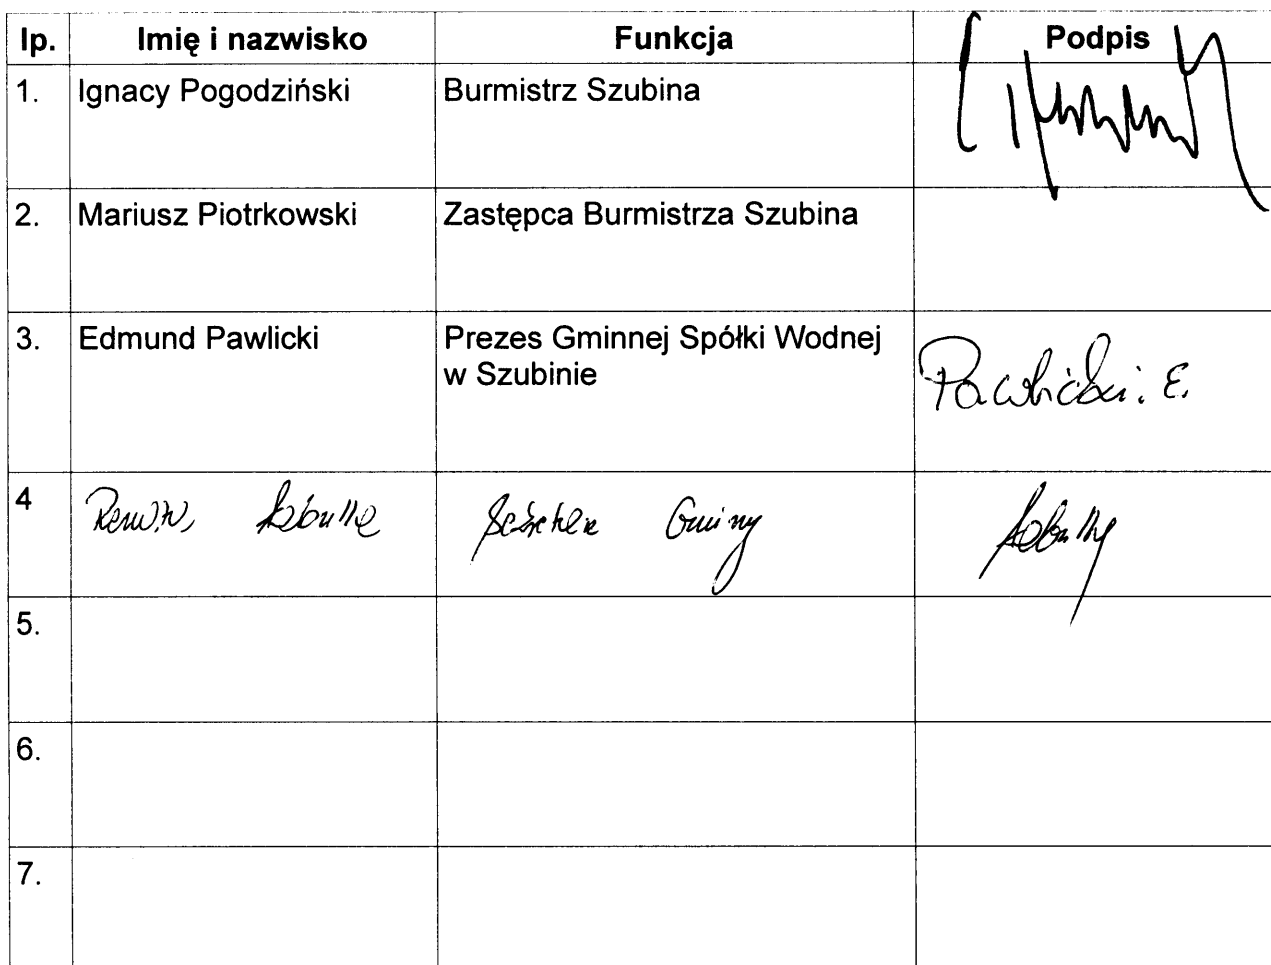 lp. Imię i nazwisko Funkcja Podpis
1. Ignacy Pogodziński Burmistrz Szubina
2. Mariusz Piotrkowski Zastępca Burmistrza Szubina
3. Edmund Pawlicki Prezes Gminnej Spółki Wodnej
w Szubinie Pawlicki. E.
4 Gminy
5.
6.
7.